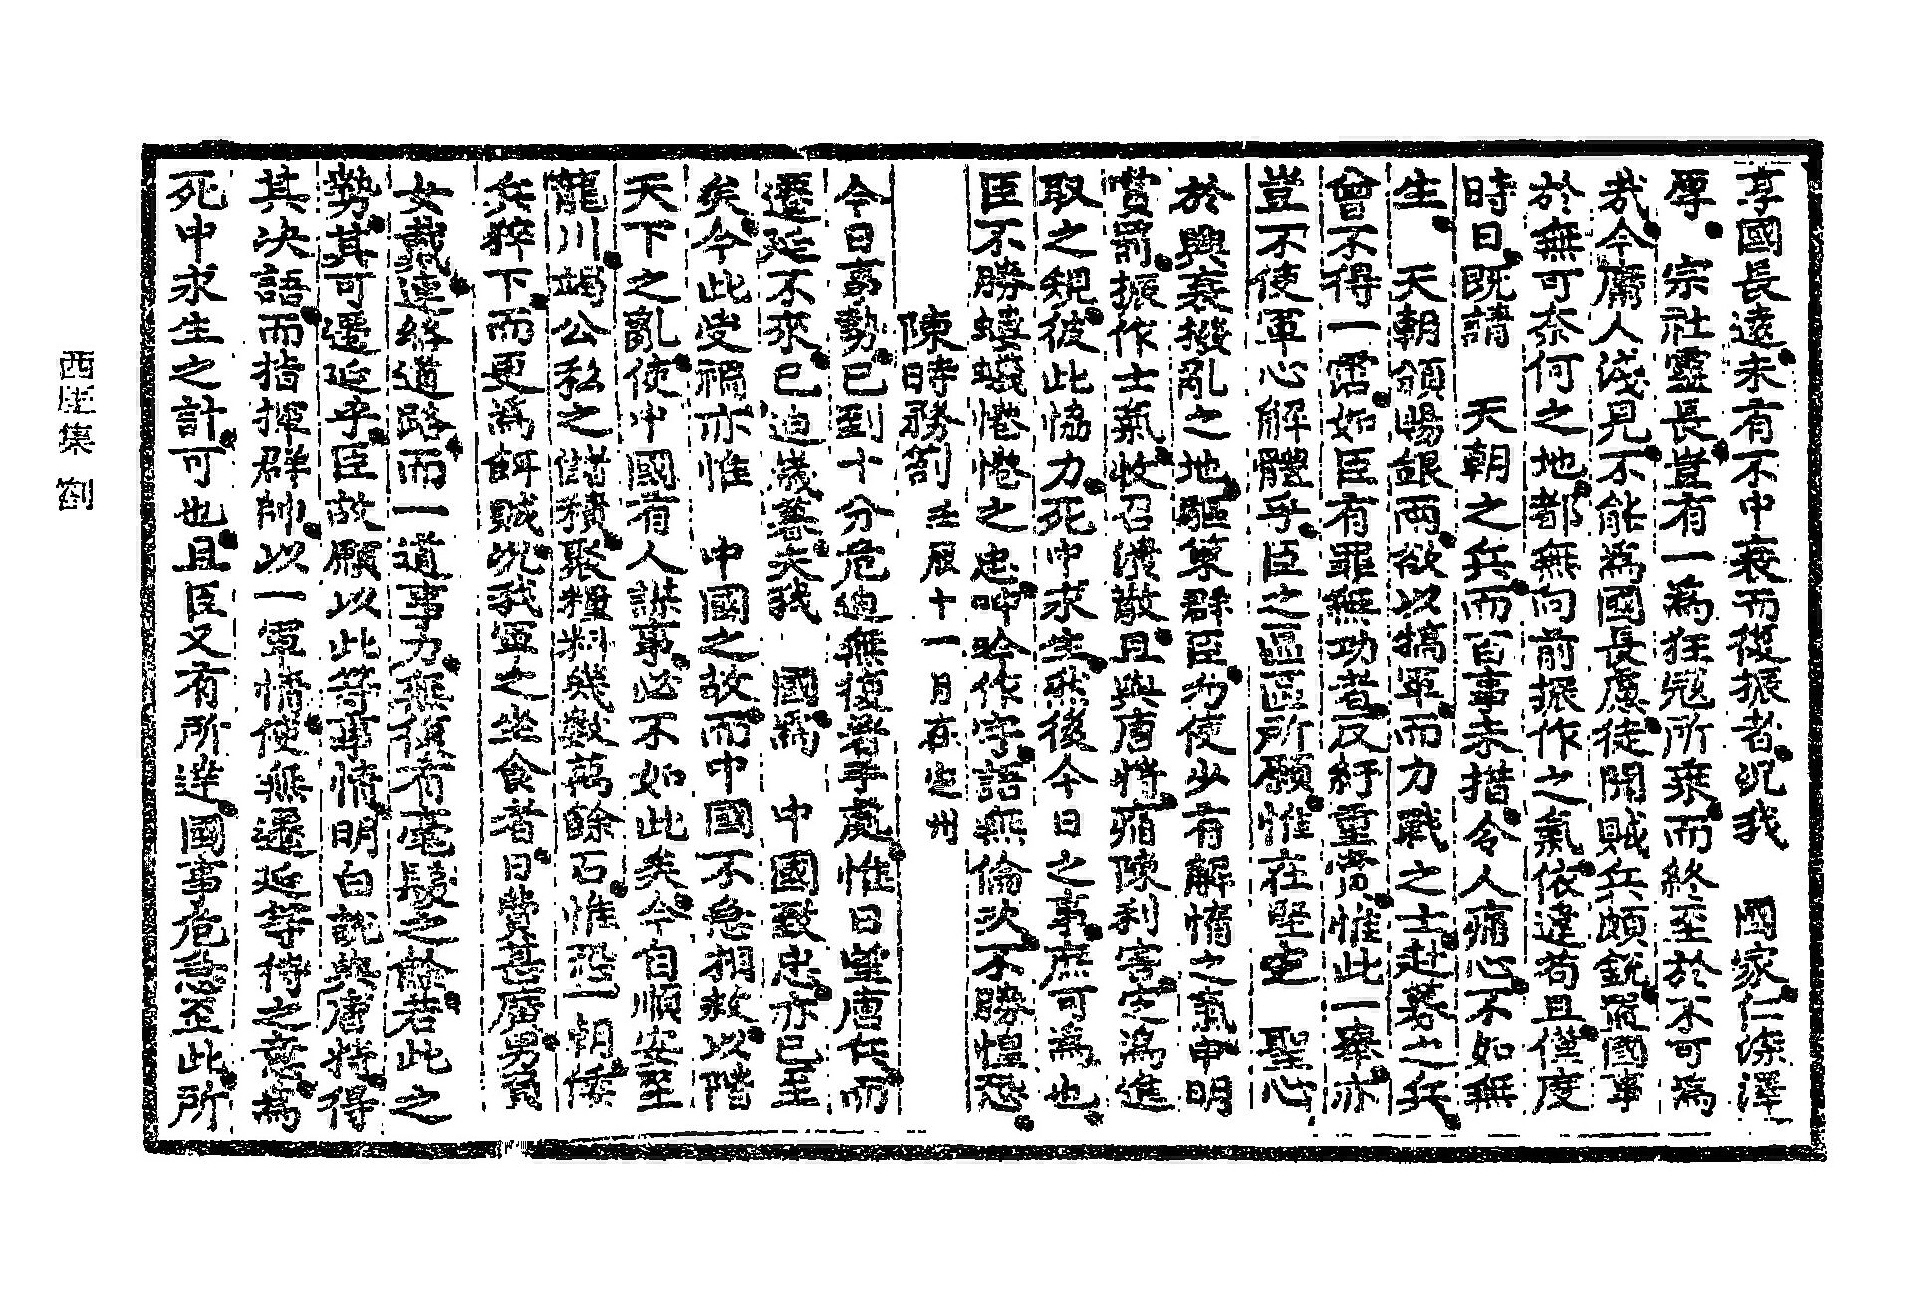 享國長遠未有不中衰而復振者況我 國家仁深澤
厚 宗社靈長豈有一爲狂寇所乘而終至於不可爲
哉今庸人淺見不能爲國長慮徒聞賊兵頗銳罷國事
於無可奈何之地都無向前振作之氣依違苟且僅度
時日旣請 天朝之兵而百事未措令人痛心不如無
生 天朝頒賜銀兩欲以犒軍而力戰之士赴募之兵
曾不得一霑如臣有罪無功者反紆重賞惟此一擧亦
豈不使軍心解體乎臣之區區所願惟在堅定 聖心
於興衰撥亂之地驅策群臣勿使少有解惰之氣申明
賞罰振作士氣收召潰散且與唐將痛陳利害定爲進
取之規彼此恊力死中求生然後今日之事庶可爲也
臣不勝螻蟻惓惓之忠呻吟作字語無倫次不勝惶恐
陳時務箚 壬辰十一月在定州
今日事勢已到十分危迫無復着手處惟日望唐兵而
遷延不來已迫歲暮夫我 國爲 中國致忠亦已至
矣今此受禍亦惟 中國之故而中國不急相救以階
天下之亂使中國有人謀事必不如此矣今自順安至
龍川竭公私之儲積聚糧料幾數萬餘石惟恐一朝倭
兵猝下而更爲餌賊況我軍之坐食者日費甚廣男負
女戴連絡道路而一道事力無復有毫髮之餘若此之
勢其可遷延乎臣故願以此等事情明白說與唐將得
其决語而指揮群帥以一軍情使無遷延等待之意爲
死中求生之計可也且臣又有所達國事危急至此所
西厓集 箚